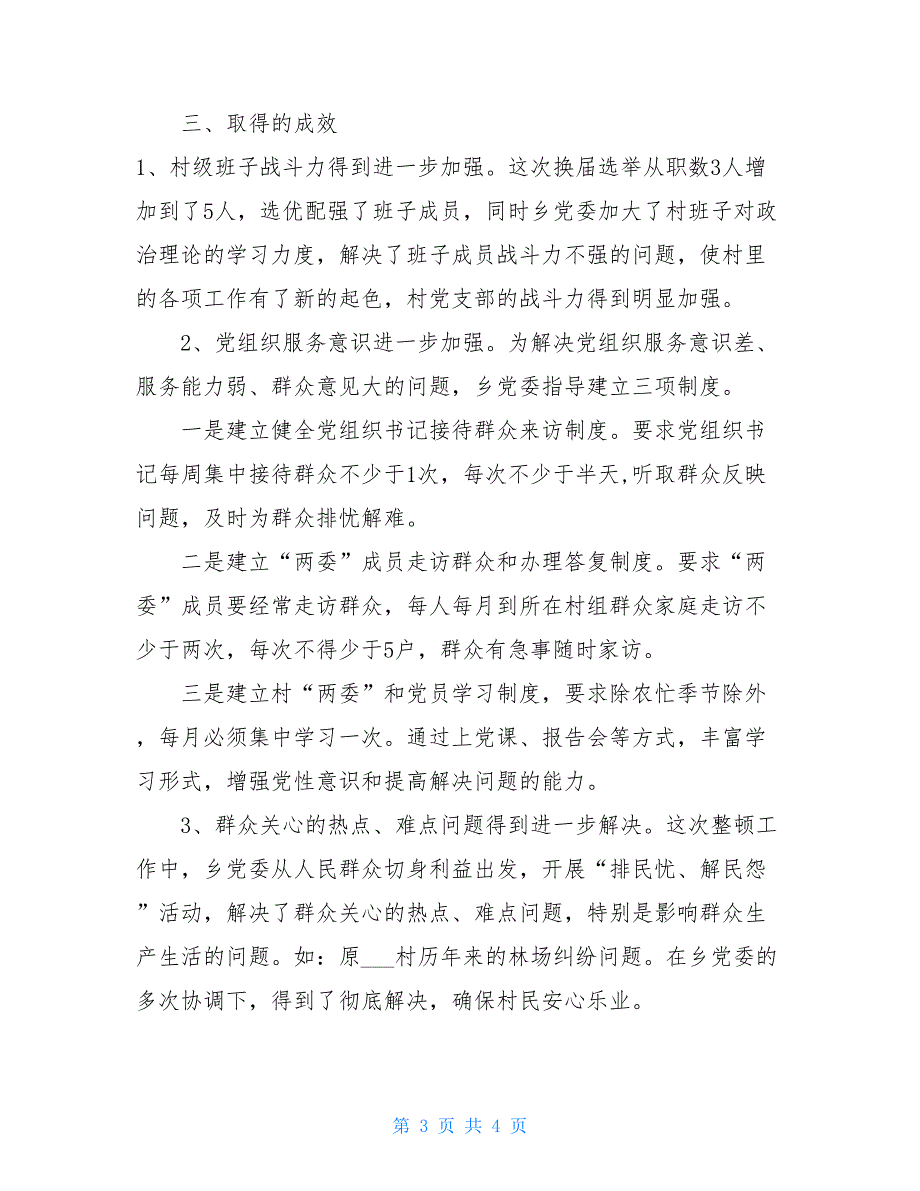 三、取得的成效
1、村级班子战斗力得到进一步加强。这次换届选举从职数3人增
加到了5人，选优配强了班子成员，同时乡党委加大了村班子对政
治理论的学习力度，解决了班子成员战斗力不强的问题，使村里
的各项工作有了新的起色，村党支部的战斗力得到明显加强。
2、党组织服务意识进一步加强。为解决党组织服务意识差、
服务能力弱、群众意见大的问题，乡党委指导建立三项制度。
一是建立健全党组织书记接待群众来访制度。要求党组织书
记每周集中接待群众不少于1次，每次不少于半天,听取群众反映
问题，及时为群众排忧解难。
二是建立“两委”成员走访群众和办理答复制度。要求“两
委”成员要经常走访群众，每人每月到所在村组群众家庭走访不
少于两次，每次不得少于5户，群众有急事随时家访。
三是建立村“两委”和党员学习制度，要求除农忙季节除外
，每月必须集中学习一次。通过上党课、报告会等方式，丰富学
习形式，增强党性意识和提高解决问题的能力。
3、群众关心的热点、难点问题得到进一步解决。这次整顿工
作中，乡党委从人民群众切身利益出发，开展“排民忧、解民怨
”活动，解决了群众关心的热点、难点问题，特别是影响群众生
产生活的问题。如：原___村历年来的林场纠纷问题。在乡党委的
多次协调下，得到了彻底解决，确保村民安心乐业。
第 3 页 共 4 页